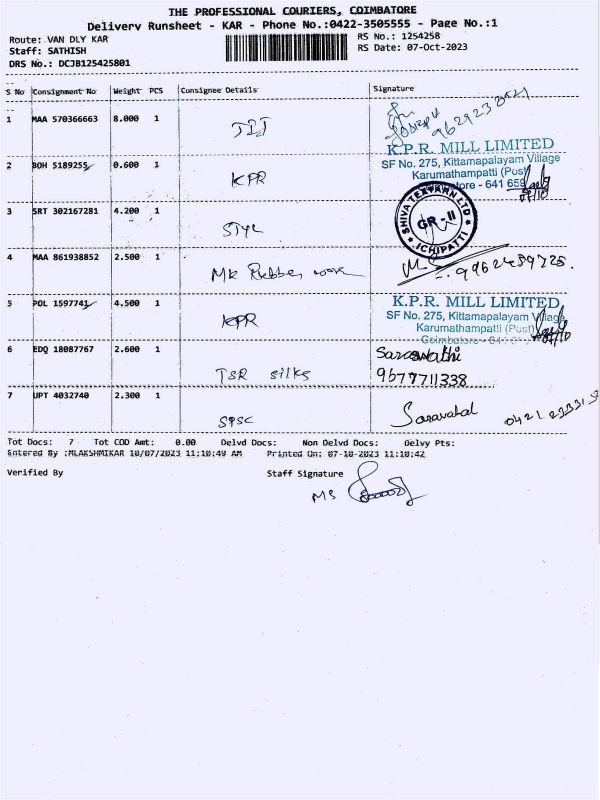 THE PROFESSIONAL COURIERS, COIMBATORE
Delivery Runsheet - KAR - Phone No.:0422-3505555 - Page No.:1
Route: VAN DLY KAR RS No.: 1254258
Staff: SATHISH RS Date: 07-Oct-2023
DRS No.: DCJB125425801
S No Consignment No Weight PCS Consignee Details Signature
1 MAA 570366663 8.000 1
K.P.R. MILL LIMITED
SF No. 275, Kittamapalayam Village
Karumathampatti (Post)
2 BOH 5189255 0.600 1 KPR
641 659
07/10
3 SRT 302167281 4.200 1 STYL
SHIVA TEXYARN LTD
GR-II
ICHIPATTI
4 MAA 861938852 2.500 1 MK Rubber
9962489725.
5 POL 1597741 4.500 1 KPR
K.P.R. MILL LIMITED
SF No. 275, Kittamapalayam Village
Karumathampatti (Post)
Coimbatore
6 EDQ 18087767 2.600 1 TSR silks
Saraswathi
9677711338
7 UPT 4032740 2.300 1 SPSC
Tot Docs: 7 Tot COD Amt: 0.00 Delvd Docs: Non Delvd Docs: Delvy Pts:
Entered By :MLAKSHMIKAR 10/07/2023 11:10:49 AM Printed On: 07-10-2023 11:10:42
Verified By Staff Signature
MS